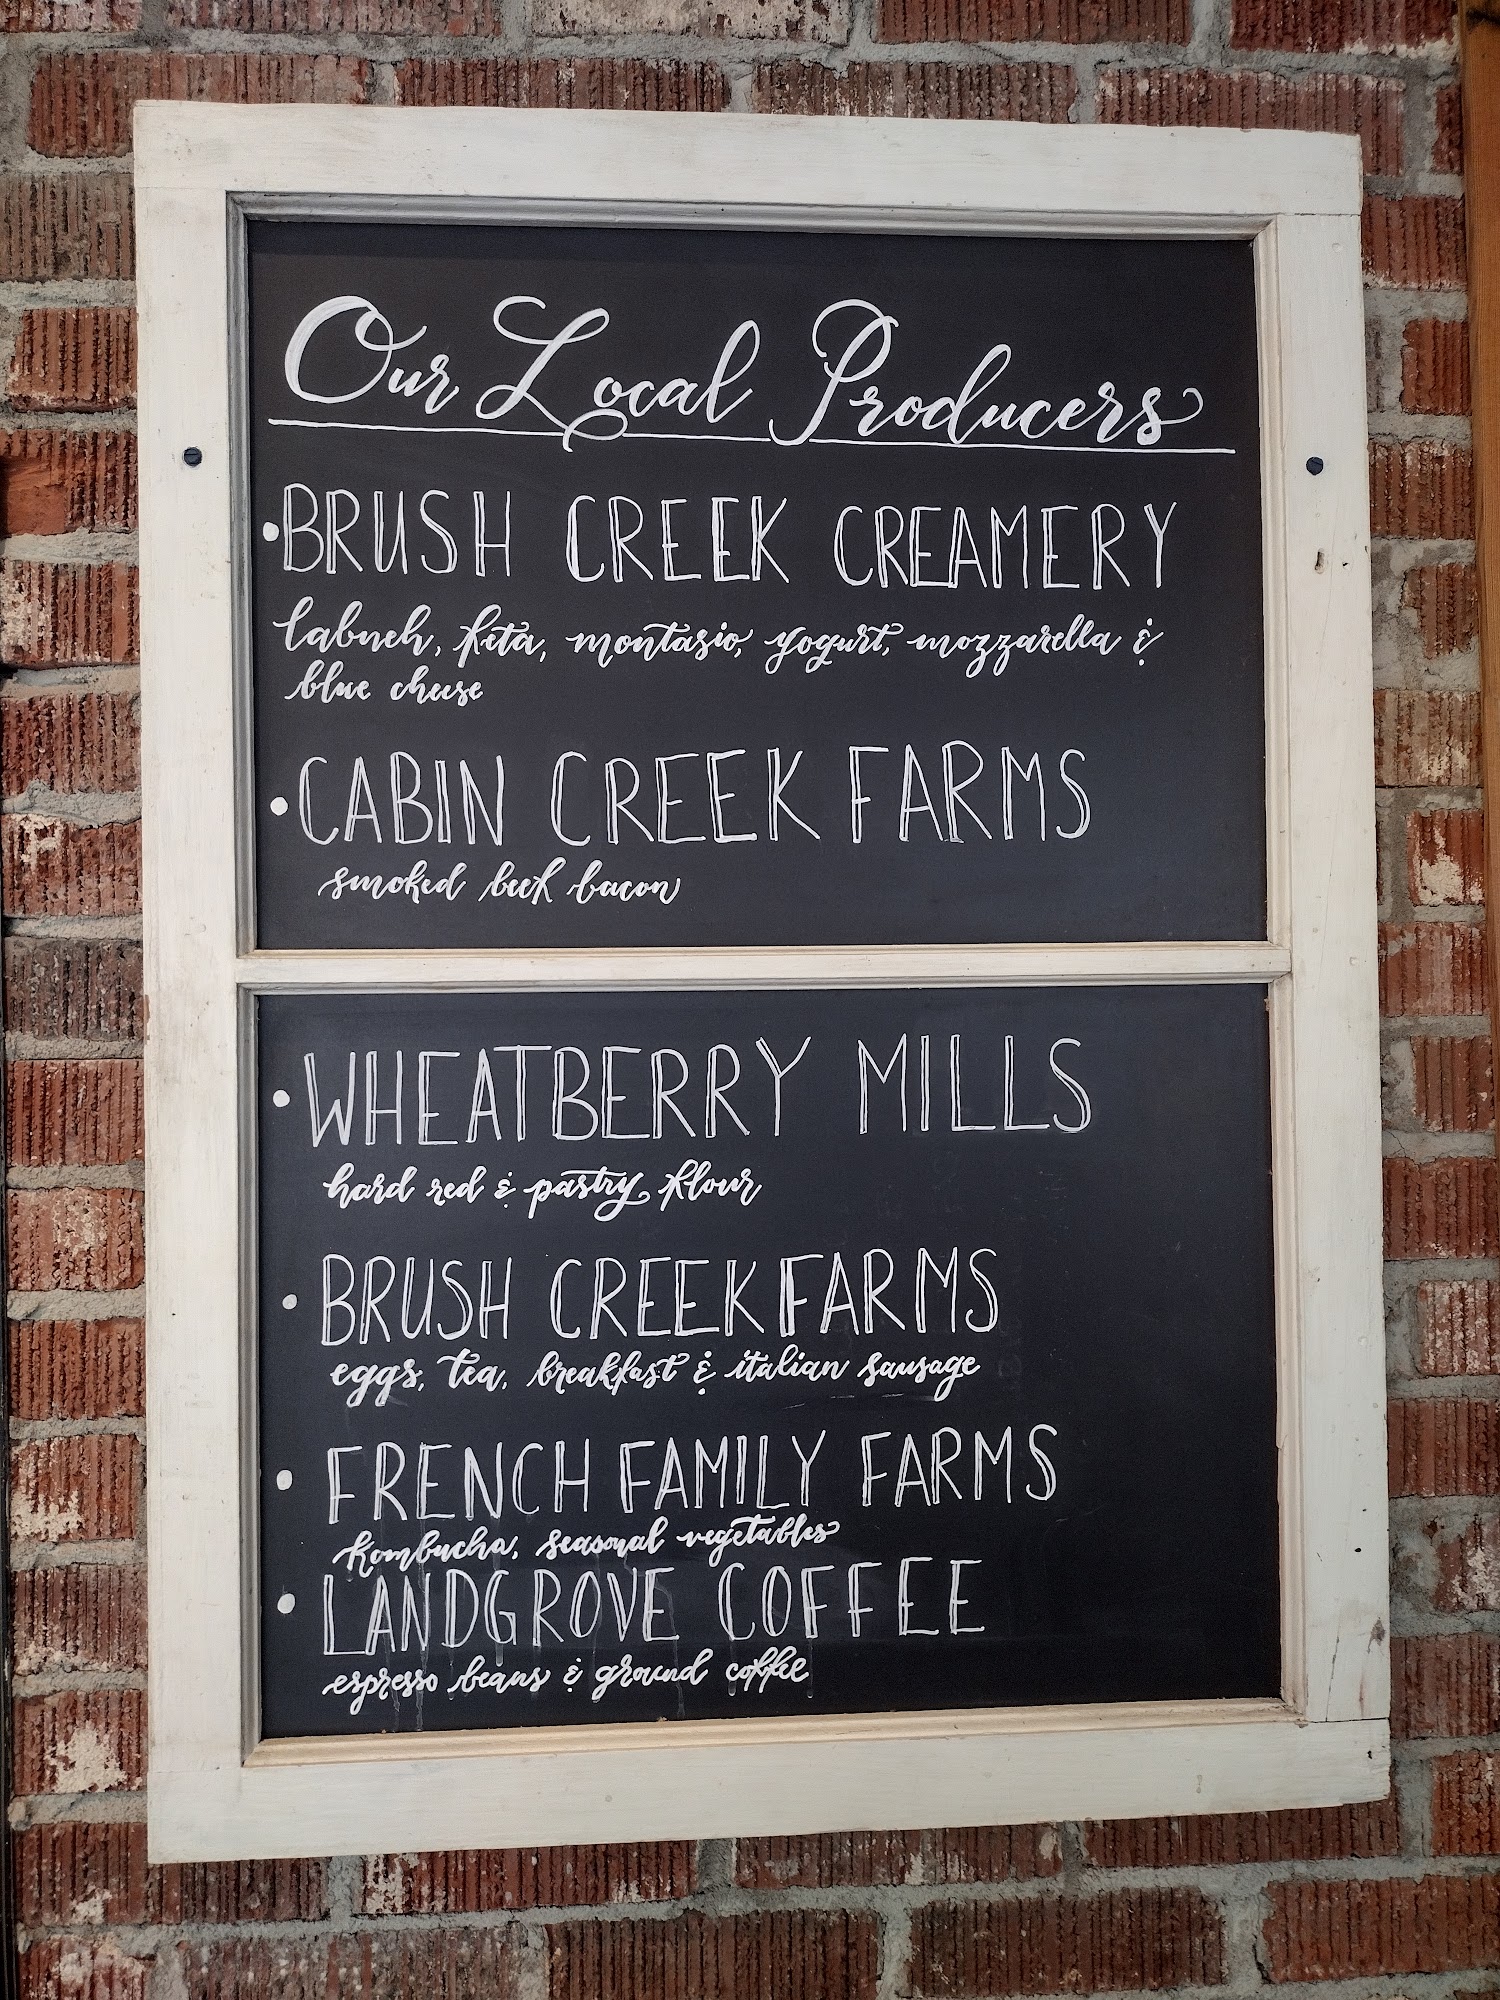 Our Local Producers
• BRUSH CREEK CREAMERY
labneh, feta, montasio, yogurt, mozzarella &
blue cheese
• CABIN CREEK FARMS
smoked beef bacon
• WHEATBERRY MILLS
hard red & pastry flour
• BRUSH CREEK FARMS
eggs, tea, breakfast & italian sausage
• FRENCH FAMILY FARMS
kombucha, seasonal vegetables
• LANDGROVE COFFEE
espresso beans & ground coffee